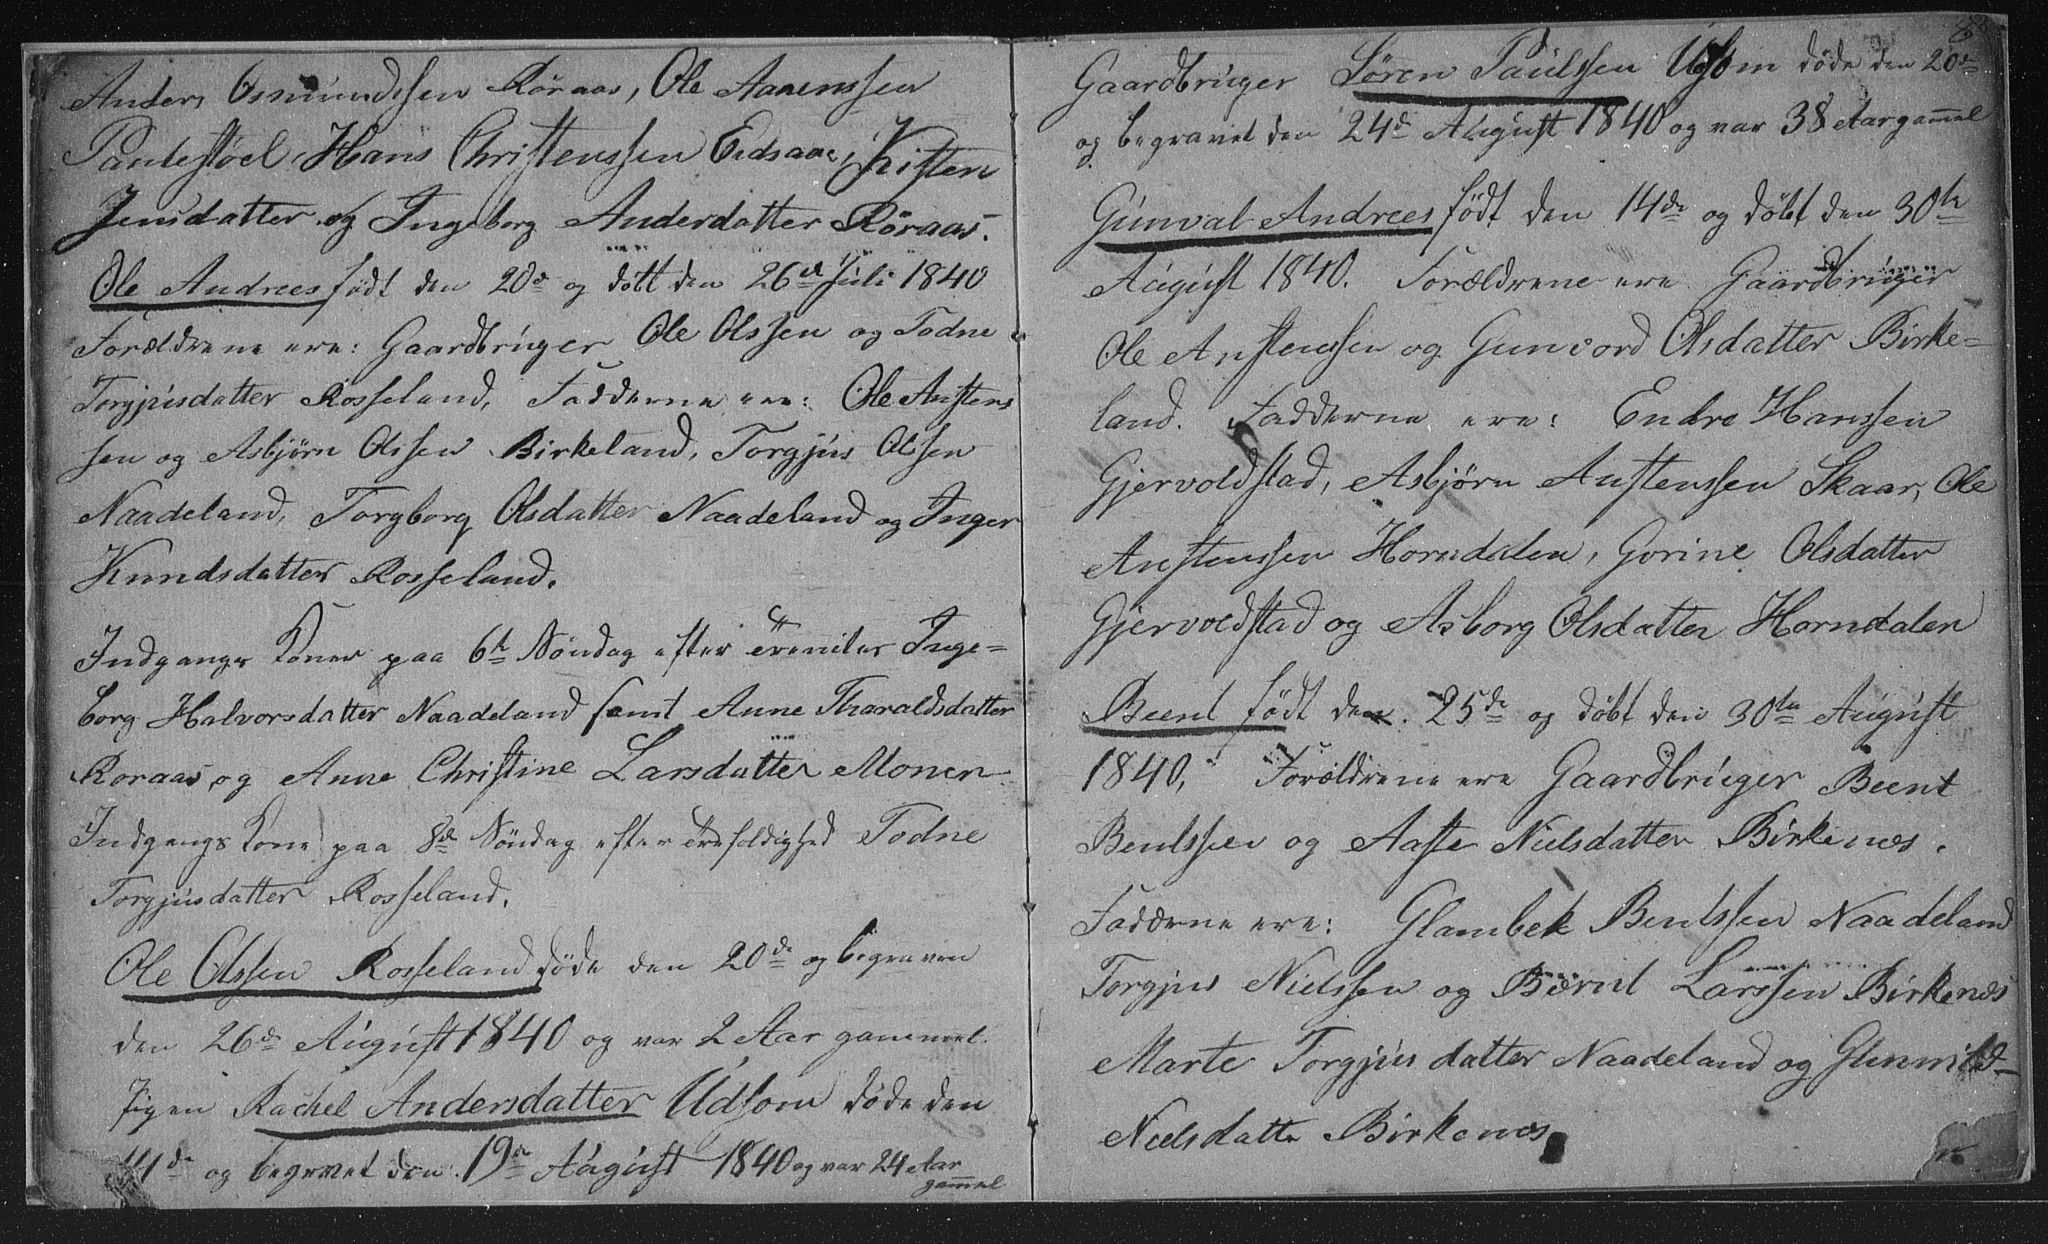 Anders Osmundssen Røraas, Ole Aanenssen
Pantestøel Hans Christenssen Eidsaae, Kisten
Jensdatter og Ingeborg Andersdatter Røraas.
Ole Andrees født den 20de og dött den 26de Juli 1840
Forældrene ere: Gaardbruger Ole Olssen og Todne
Torgjusdatter Rosseland, Fadderne ere: Ole Austens
sen og Asbjørn Olssen Birkeland, Torgjus Olsen
Naadeland, Torgborg Olsdatter Naadeland og Inger
Knudsdatter Rosseland.
Indgangs Koner paa 6te Söndag efter Trenitas Inge=
borg Halvorsdatter Naadeland samt Anne Tharaldsdatter
Roraas, og Anne Christine Larsdatter Monen
Indgangs Kone paa 8de Söndag efter Trefoldighed Todne
Torgjusdatter Rosseland.
Ole Olssen Rosseland døde den 20de og begraven
den 26de August 1840 og var 2 Aar gammel.
Pigen Rachel Andersdatter Udsom døde den
14de og begravet den 19de August 1840 og var 24 Aar
gammel
Gaardbruger Søren Paulssen Udsom døde den 20de
og begravet den 24de August 1840 og var 38 Aar gammel
Gunval Andrees født den 14de og döbt den 30te
August 1840. Forældrene ere Gaardbruger
Ole Austenssen og Gunvord Olsdatter Birke=
land. Fadderne ere: Endre Hanssen
Gjervoldstad, Asbjørn Austenssen Skaar, Ole
Austenssen Horndalen, Gorine Olsdatter
Gjervoldstad og Asborg Olsdatter Horndalen
Beent født den 25de og döbt den 30te August
1840, Forældrene ere Gaardbruger Beent
Bentssen og Aaste Nielsdatter Birkenæs.
Fadderne ere: Glambek Bentssen Naadeland
Torgjus Nielssen og Bærnt Larssen Birkenæs
Marte Torgjusdatter Naadeland og
Nielsdatte Birkenæs